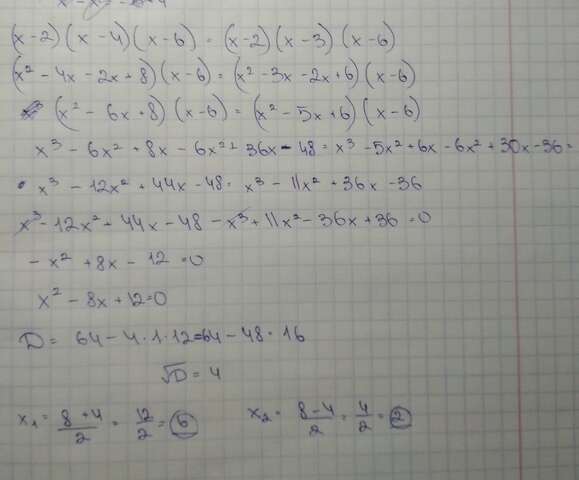 (x-2)(x-4)(x-6) = (x-2)(x-3)(x-6)
(x² - 4x - 2x + 8)(x-6) = (x² - 3x - 2x + 6)(x-6)
(x² - 6x + 8)(x-6) = (x² - 5x + 6)(x-6)
x³ - 6x² + 8x - 6x² + 36x - 48 = x³ - 5x² + 6x - 6x² + 30x - 36 =
x³ - 12x² + 44x - 48 = x³ - 11x² + 36x - 36
x³ - 12x² + 44x - 48 - x³ + 11x² - 36x + 36 = 0
- x² + 8x - 12 = 0
x² - 8x + 12 = 0
D = 64 - 4 · 1 · 12 = 64 - 48 = 16
√D = 4
x₁ = (8+4)/2 = 12/2 = 6 x₂ = (8-4)/2 = 4/2 = 2